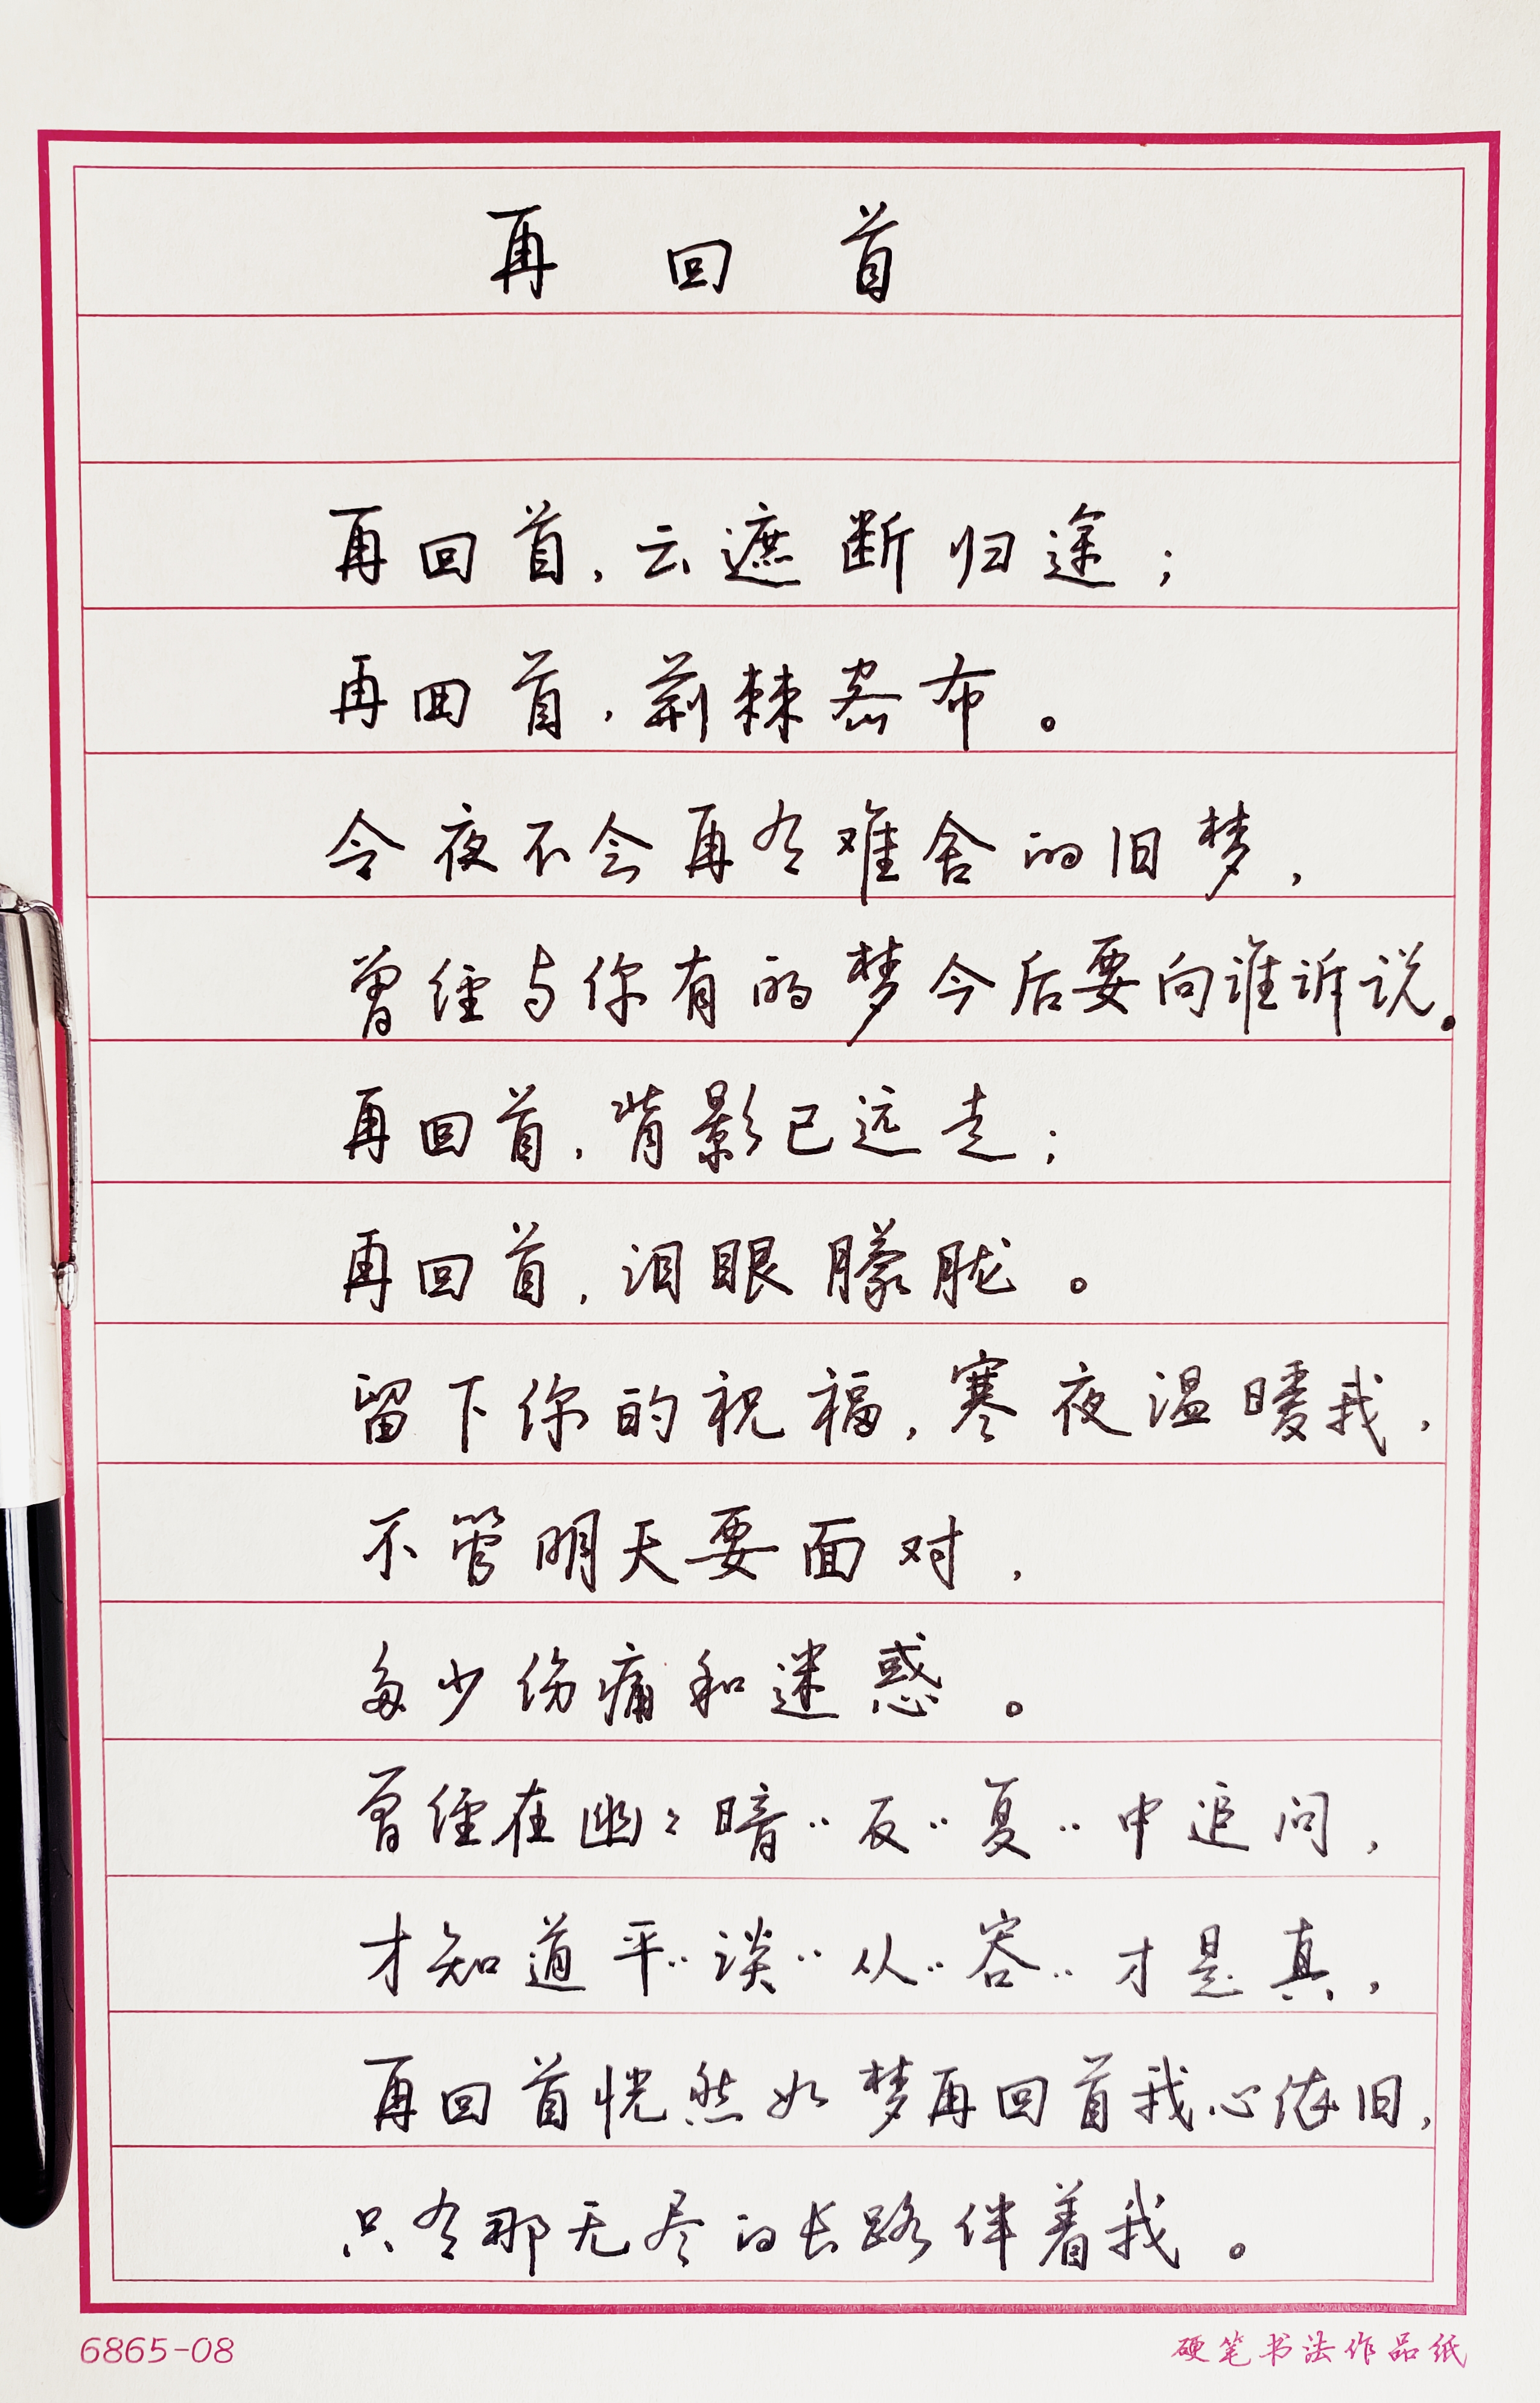 再回首
再回首，云遮断归途；
再回首，荆棘密布。
今夜不会再有难舍的旧梦，
曾经与你有的梦今后要向谁诉说。
再回首，背影已远走；
再回首，泪眼朦胧。
留下你的祝福，寒夜温暖我，
不管明天要面对，
多少伤痛和迷惑。
曾经在幽々暗‥反‥复‥中追问，
才知道平‥谈‥从‥容‥才是真，
再回首恍然如梦再回首我心依旧，
只有那无尽的长路伴着我。
6865-08
硬笔书法作品纸